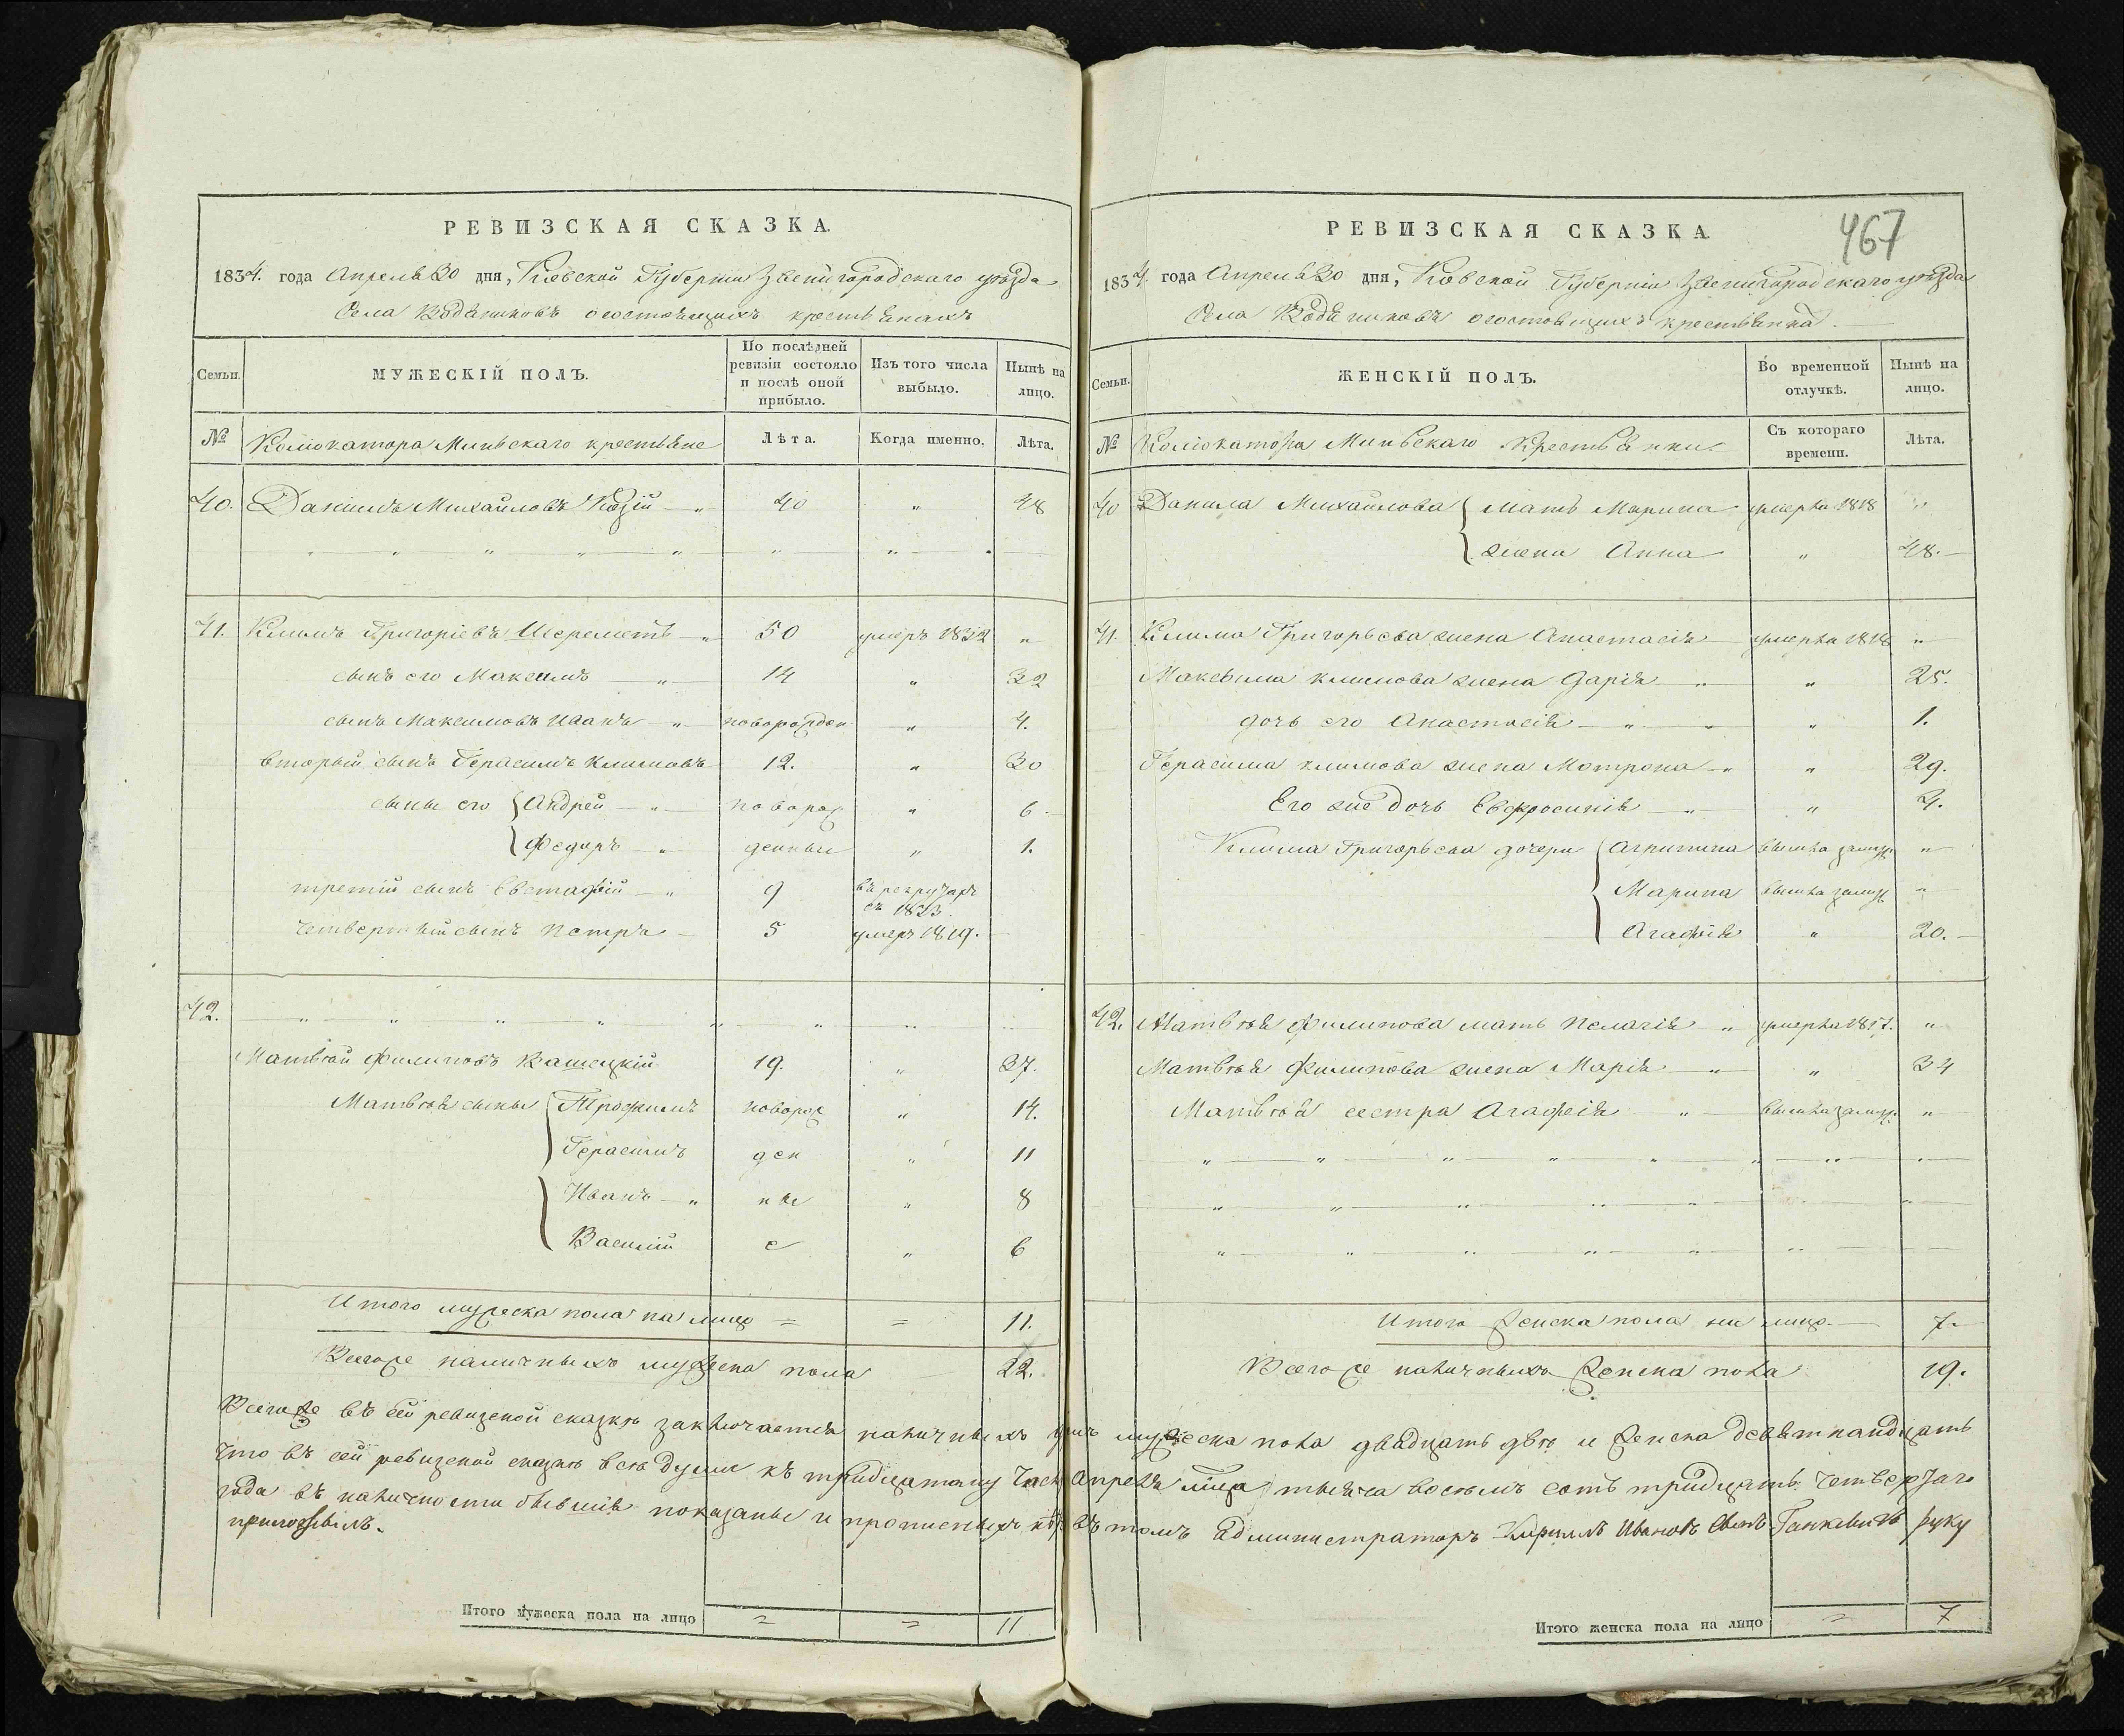 РЕВИЗСКАЯ СКАЗКА.
1834. года Апреля 30 дня, Кіевской Губерніи Звенигородскаго уѣзда
Села Водяниковъ о состоящихъ крестьянахъ
Семьи.
МУЖЕСКІЙ ПОЛЪ.
По послѣдней ревизіи состояло и послѣ оной прибыло.
Изъ того числа выбыло.
Нынѣ на лицо.
№
крестьяне
Лѣта.
Когда именно.
Лѣта.
40. Даніилъ Михайловъ Козій — " 40 " 48
41. Климъ Григоріевъ Шереметъ — " 50 умеръ 1832 "
сынъ его Максимъ — " 14 " 32
сынъ Максимовъ Иванъ — " новорожден " 4.
вторый сынъ Герасимъ Климовъ 12. " 30
сыны его Андрей — " новорож " 6
Федоръ — " денные " 1.
третій сынъ Евстафій — " 9 въ рекрутахъ съ 1823
четвертый сынъ Петръ — 5 умеръ 1819.
42.
Матвѣй Филиповъ 19. " 37.
Матвѣя сыны Трофимъ новорож " 14.
Герасимъ ден " 11
Иванъ — " ны " 8
Василій е " 6
Итого мужеска пола на лицо = = 11.
Всего же наличныхъ мужеска пола 22.
Итого мужеска пола на лицо = = 11
467
РЕВИЗСКАЯ СКАЗКА
1834. года Апреля 30 дня, Кіевской Губерніи Звенигородскаго уѣзда
Села Водяниковъ о состоящихъ крестьянка.
Семьи.
ЖЕНСКІЙ ПОЛЪ.
Во временной отлучкѣ.
Нынѣ на лицо.
№
Крестьянки
Съ котораго времени.
Лѣта.
40 Данила Михайлова мать Марина умерла 1818 "
жена Анна " 48.
41. Клима Григорьева жена Анастасія умерла 1818 "
Максыма Климова жена Дарія " " 25.
дочь его Анастасія — " " 1.
Герасима Климова жена Мотрона — " " 29.
Его же дочь Евфросинія — " " 4.
Клима Григорьева дочери вышла замуж. "
Марина вышла замуж. "
Агафія " 20.
42. Матвѣя Филипова мать Пелагія " умерла "
Матвѣя Филипова жена Марія — " " 34
Матвѣя сестра Агафія " вышла замуж. "
Итого женска пола на лицо. — 7.
Всего же наличныхъ женска пола 19.
Всего же въ сей ревизской сказкѣ заключается наличныхъ душъ мужеска пола двадцать двѣ и женска девятнайдцать
что въ сей ревизской сказкѣ всѣ души къ тридцатому числу Апреля мца тысяча восемъ сотъ тридцять четвертаго
года въ наличности бывшія показаны и прописныхъ нѣтъ въ томъ Администраторъ Кирилъ Ивановъ сынъ Ганкевичъ руку
приложылъ.
Итого женска пола на лицо = 7